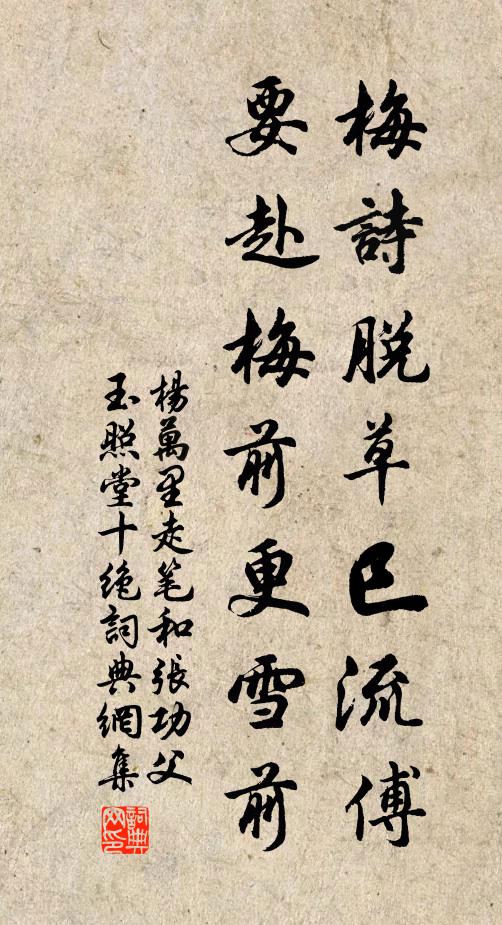 梅詩脱草已流傳
要赴梅前更雪前
楊萬里走笔和張功父
玉照堂十絶詞典網集
詞典
网印